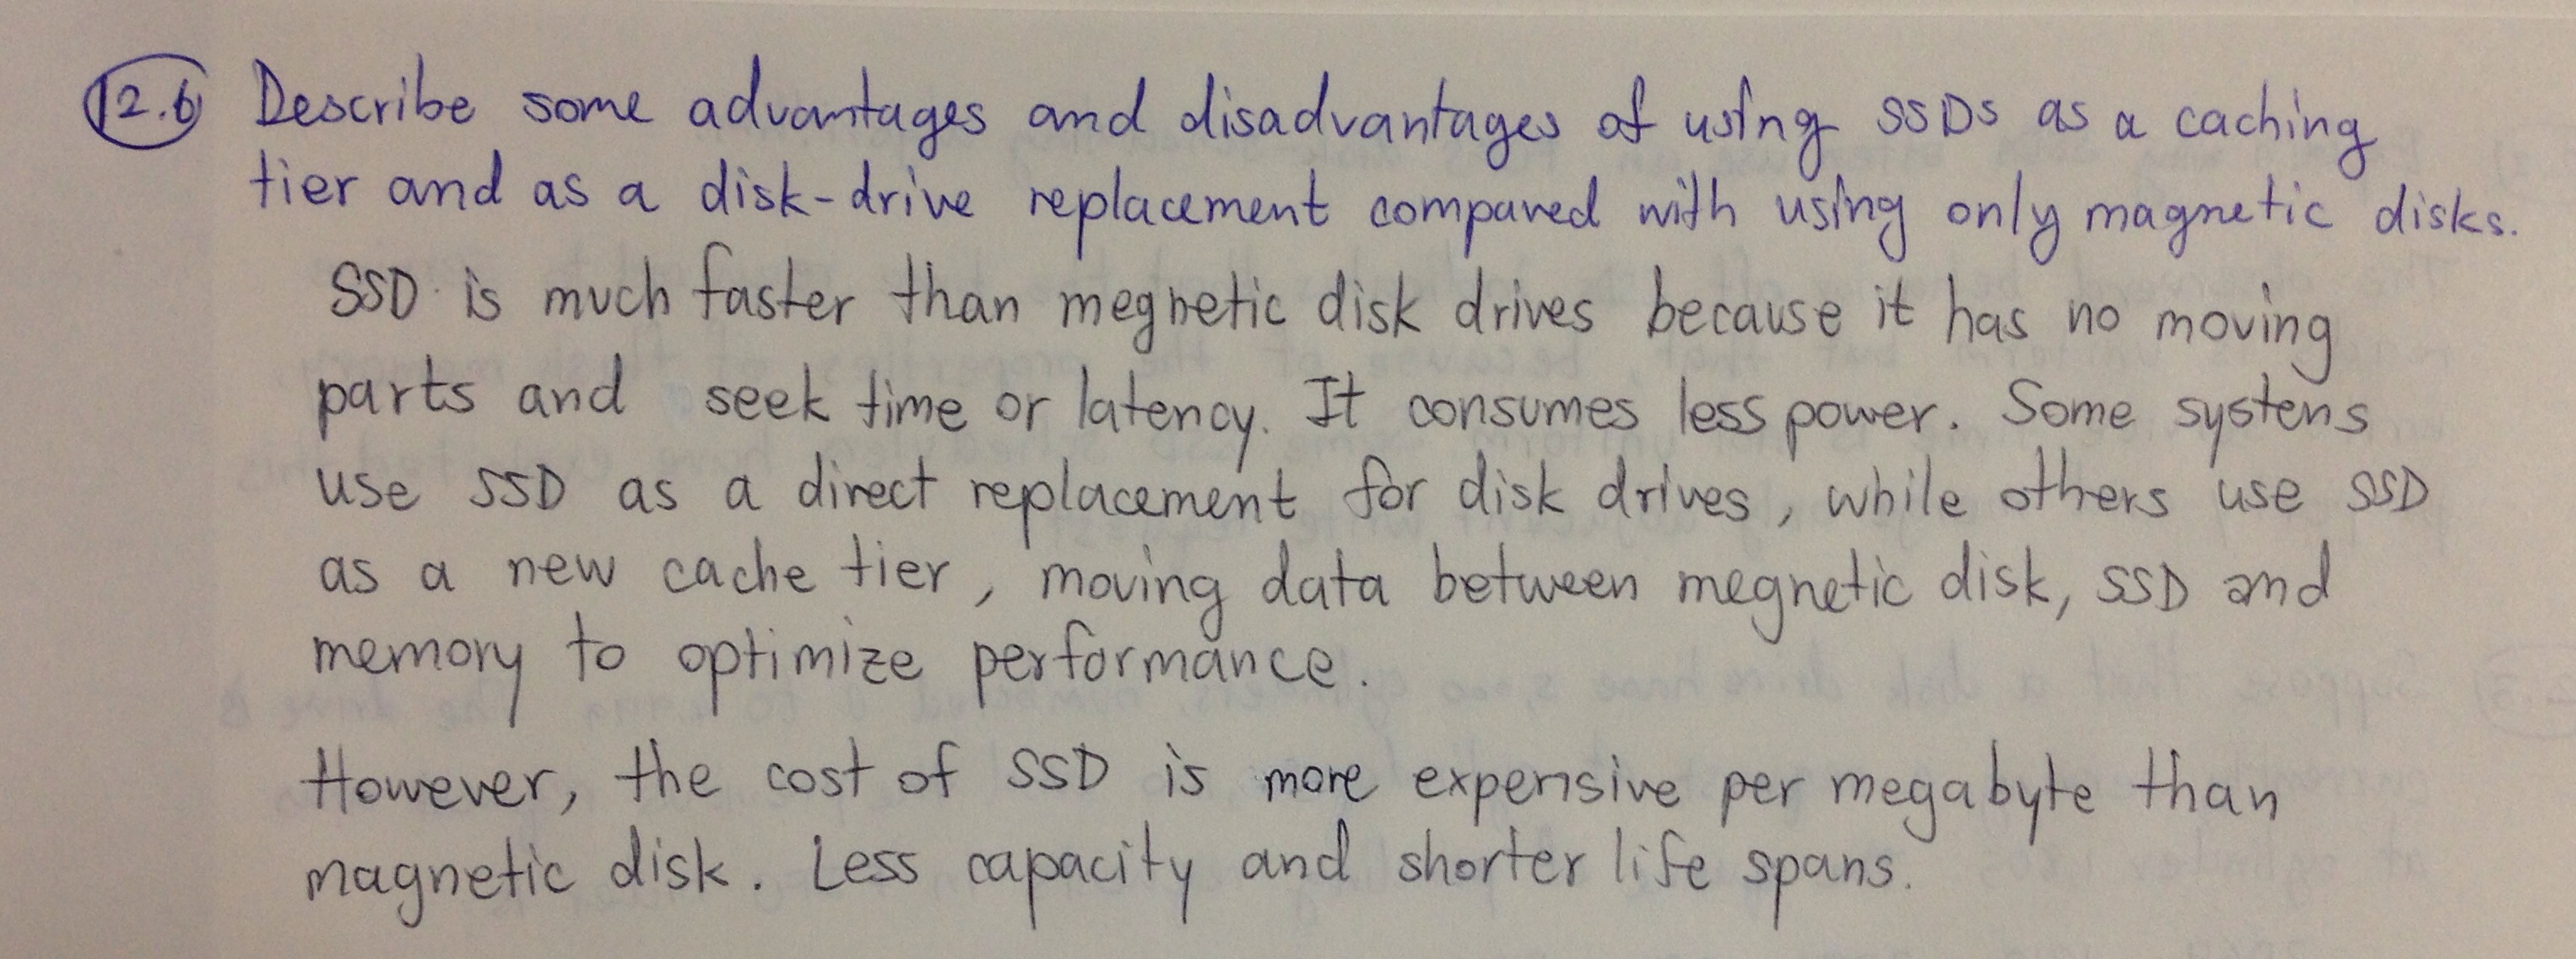 12.6 Describe some advantages and disadvantages of using SSDs as a caching
tier and as a disk-drive replacement compared with using only magnetic disks.
SSD is much faster than megnetic disk drives because it has no moving
parts and seek time or latency. It consumes less power. Some systems
use SSD as a direct replacement for disk drives, while others use SSD
as a new cache tier, moving data between megnetic disk, SSD and
memory to optimize performance.
However, the cost of SSD is more expensive per megabyte than
magnetic disk. Less capacity and shorter life spans.